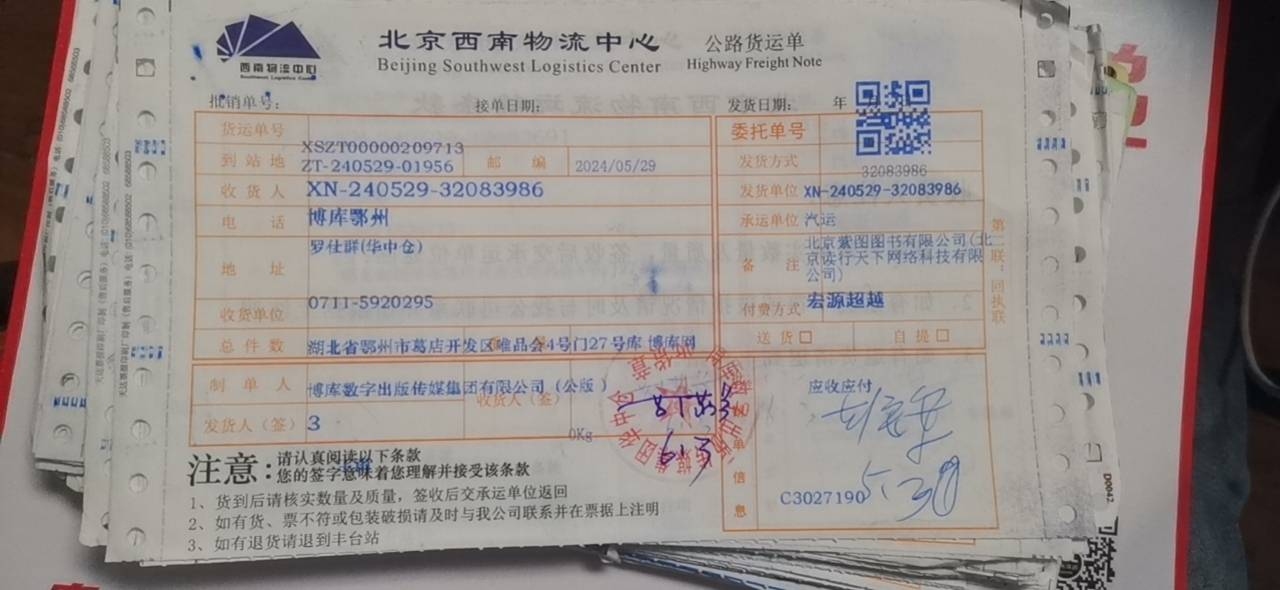 西南物流中心
Southwest Logistics Center
北京西南物流中心
Beijing Southwest Logistics Center
公路货运单
Highway Freight Note
批销单号:
接单日期:
发货日期: 年
货运单号
XSZT00000209713
委托单号
到站地 ZT-240529-01956
邮编 2024/05/29
发货方式
32083986
收货人 XN-240529-32083986
发货单位 XN-240529-32083986
电话 博库鄂州
承运单位 汽运
地址
罗仕群(华中仓)
备注
北京紫图图书有限公司(北
京读行天下网络科技有限
公司)
收货单位 0711-5920295
付费方式 宏源超越
总件数 湖北省鄂州市葛店开发区唯品会4号门27号库 博库网
送货 自提
制单人 博库数字出版传媒集团有限公司(公版)
收货人(签)
应收应付
发货人(签) 3
0Kg
6.13
单
信
息
C3027190
5.30
第二联:回执联
注意:
请认真阅读以下条款
您的签字意味着您理解并接受该条款
1、货到后请核实数量及质量,签收后交承运单位返回
2、如有货、票不符或包装破损请及时与我公司联系并在票据上注明
3、如有退货请退到丰台站
D0042